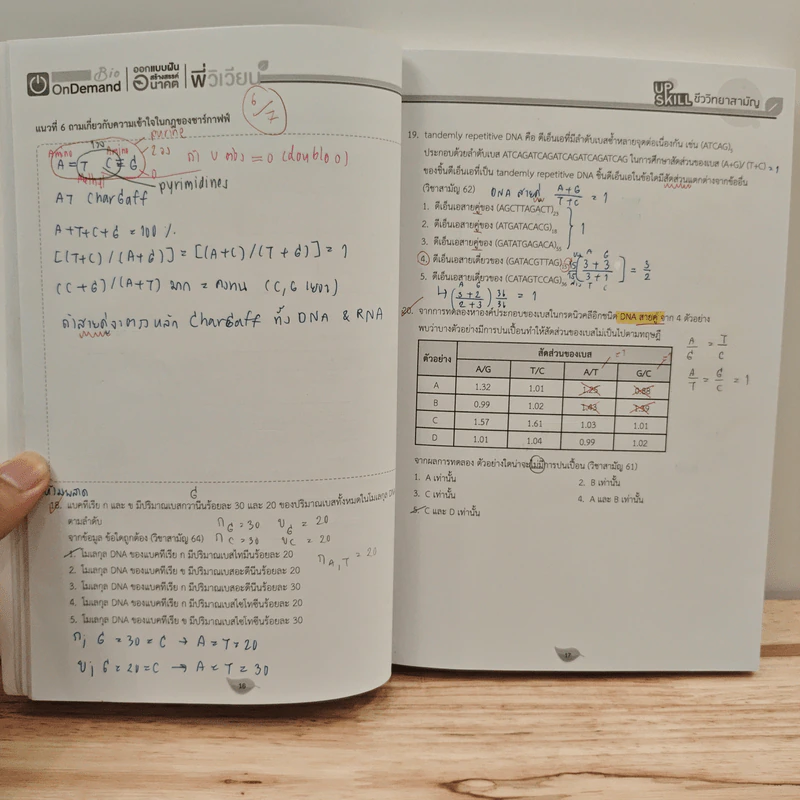 OnDemand
Bio
ออกแบบฝัน
สร้างสรรค์
อนาคต
พี่วิเวียน
6/7
แนวที่ 6 ถามเกี่ยวกับความเข้าใจในกฎของชาร์กาฟฟ์
purine
A = T C ≡ G
2 วง
pyrimidines
(double)
กฎ Chargaff
A+T+C+G = 100 %
[(T+C)/(A+G)] = [(A+C)/(T+G)] = 1
(C+G)/(A+T) มาก = คงทน (C,G เยอะ)
ถ้าสายคู่จะตรงหลัก Chargaff ทั้ง DNA & RNA
ห้ามพลาด
G
18. แบคทีเรีย ก และ ข มีปริมาณเบสกวานีนร้อยละ 30 และ 20 ของปริมาณเบสทั้งหมดในโมเลกุล
ตามลำดับ
ก G = 30 ข G = 20
จากข้อมูล ข้อใดถูกต้อง (วิชาสามัญ 64)
ก C = 30 ข C = 20
1. โมเลกุล DNA ของแบคทีเรีย ก มีปริมาณเบสไทมีนร้อยละ 20
ก A,T = 20
2. โมเลกุล DNA ของแบคทีเรีย ข มีปริมาณเบสอะดีนีนร้อยละ 20
3. โมเลกุล DNA ของแบคทีเรีย ก มีปริมาณเบสอะดีนีนร้อยละ 30
4. โมเลกุล DNA ของแบคทีเรีย ก มีปริมาณเบสไซโทซีนร้อยละ 20
5. โมเลกุล DNA ของแบคทีเรีย ข มีปริมาณเบสไซโทซีนร้อยละ 30
ก; G = 30 = C → A = T = 20
ข; G = 20 = C → A = T = 30
UP
SKILL ชีววิทยาสามัญ
19. tandemly repetitive DNA คือ ดีเอ็นเอที่มีลำดับเบสซ้ำหลายจุดต่อเนื่องกัน เช่น (ATCAG)
ประกอบด้วยลำดับเบส ATCAGATCAGATCAGATCAGATCAG ในการศึกษาสัดส่วนของเบส (A+G)/(T+C) = 1
ของชิ้นดีเอ็นเอที่เป็น tandemly repetitive DNA ชิ้นดีเอ็นเอในข้อใดมีสัดส่วนแตกต่างจากข้ออื่น
(วิชาสามัญ 62)
DNA สายคู่ A+G/T+C = 1
1. ดีเอ็นเอสายคู่ของ (AGCTTAGACT)
2. ดีเอ็นเอสายคู่ของ (ATGATACACG)
1
3. ดีเอ็นเอสายคู่ของ (GATATGAGACA)
4. ดีเอ็นเอสายเดี่ยวของ (GATACGTTAG)
(3+3)/(3+1) = 3/2
5. ดีเอ็นเอสายเดี่ยวของ (CATAGTCCAG)
↳ (3+2)/(2+3) 36/36 = 1
20. จากการทดลองหาองค์ประกอบของเบสในกรดนิวคลีอิกชนิด DNA สายคู่ จาก 4 ตัวอย่าง
พบว่าบางตัวอย่างมีการปนเปื้อนทำให้สัดส่วนของเบสไม่เป็นไปตามทฤษฎี
A/G = T/C
A/T = G/C = 1
ตัวอย่าง สัดส่วนของเบส
A/G T/C A/T G/C
A 1.32 1.01 1.25 0.88
B 0.99 1.02 1.43 1.39
C 1.57 1.61 1.03 1.01
D 1.01 1.04 0.99 1.02
จากผลการทดลอง ตัวอย่างใดน่าจะไม่มีการปนเปื้อน (วิชาสามัญ 61)
1. A เท่านั้น 2. B เท่านั้น
3. C เท่านั้น 4. A และ B เท่านั้น
5. C และ D เท่านั้น